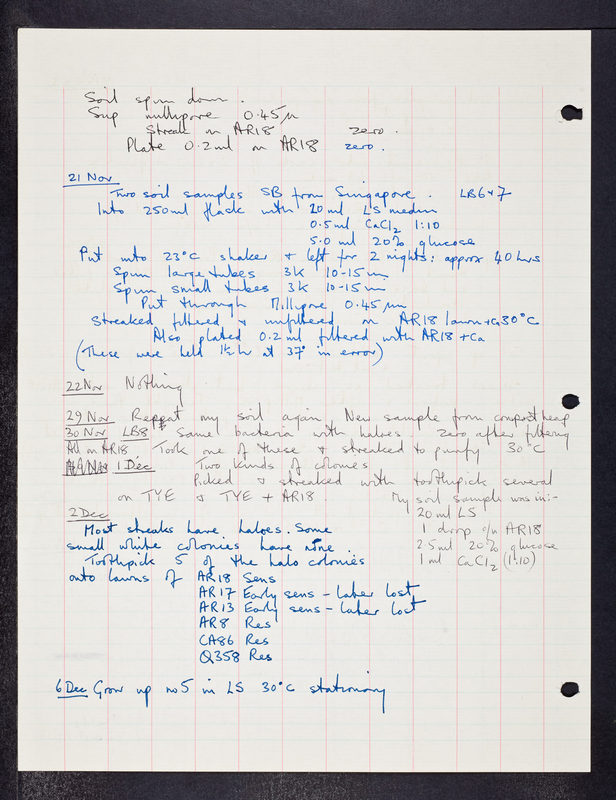 Soil spun down.
Sup millipore 0.45µ
Streak on AR18 zero.
Plate 0.2ml on AR18 zero.
21 Nov
Two soil samples SB from Singapore. LB6+7
Into 250ml flask with 20ml LS medium
0.5ml CaCl2 1:10
5.0 ml 20% glucose
Put into 23°C shaker & left for 2 nights: approx 40 hrs
Spun large tubes 3K 10-15 min
Spun small tubes 3K 10-15 min
Put through Millipore 0.45µm
Streaked filtered & unfiltered on AR18 lawn +Ca 30°C
Also plated 0.2ml filtered with AR18 + Ca
(These were held 1½ hr at 37° in error)
22 Nov Nothing
29 Nov Repeat my soil again. New sample from compost heap
30 Nov LB8 Some bacteria with haloes. Zero after filtering
All on AR18 Took one of these & streaked to purify 30°C
1 Dec Two kinds of colonies
Picked & streaked with toothpick several
on TYE & TYE + AR18. My soil sample was in:-
20ml LS
1 drop o/n AR18
2.5ml 20% glucose
1ml CaCl2 (1:10)
2 Dec
Most streaks have haloes. Some
small white colonies have none.
Toothpick 5 of the halo colonies
onto lawns of AR18 Sens
AR17 Early sens - later lost
AR13 Early sens - later lost
AR8 Res
CA86 Res
Q358 Res
6 Dec Grow up no 5 in LS 30°C stationary